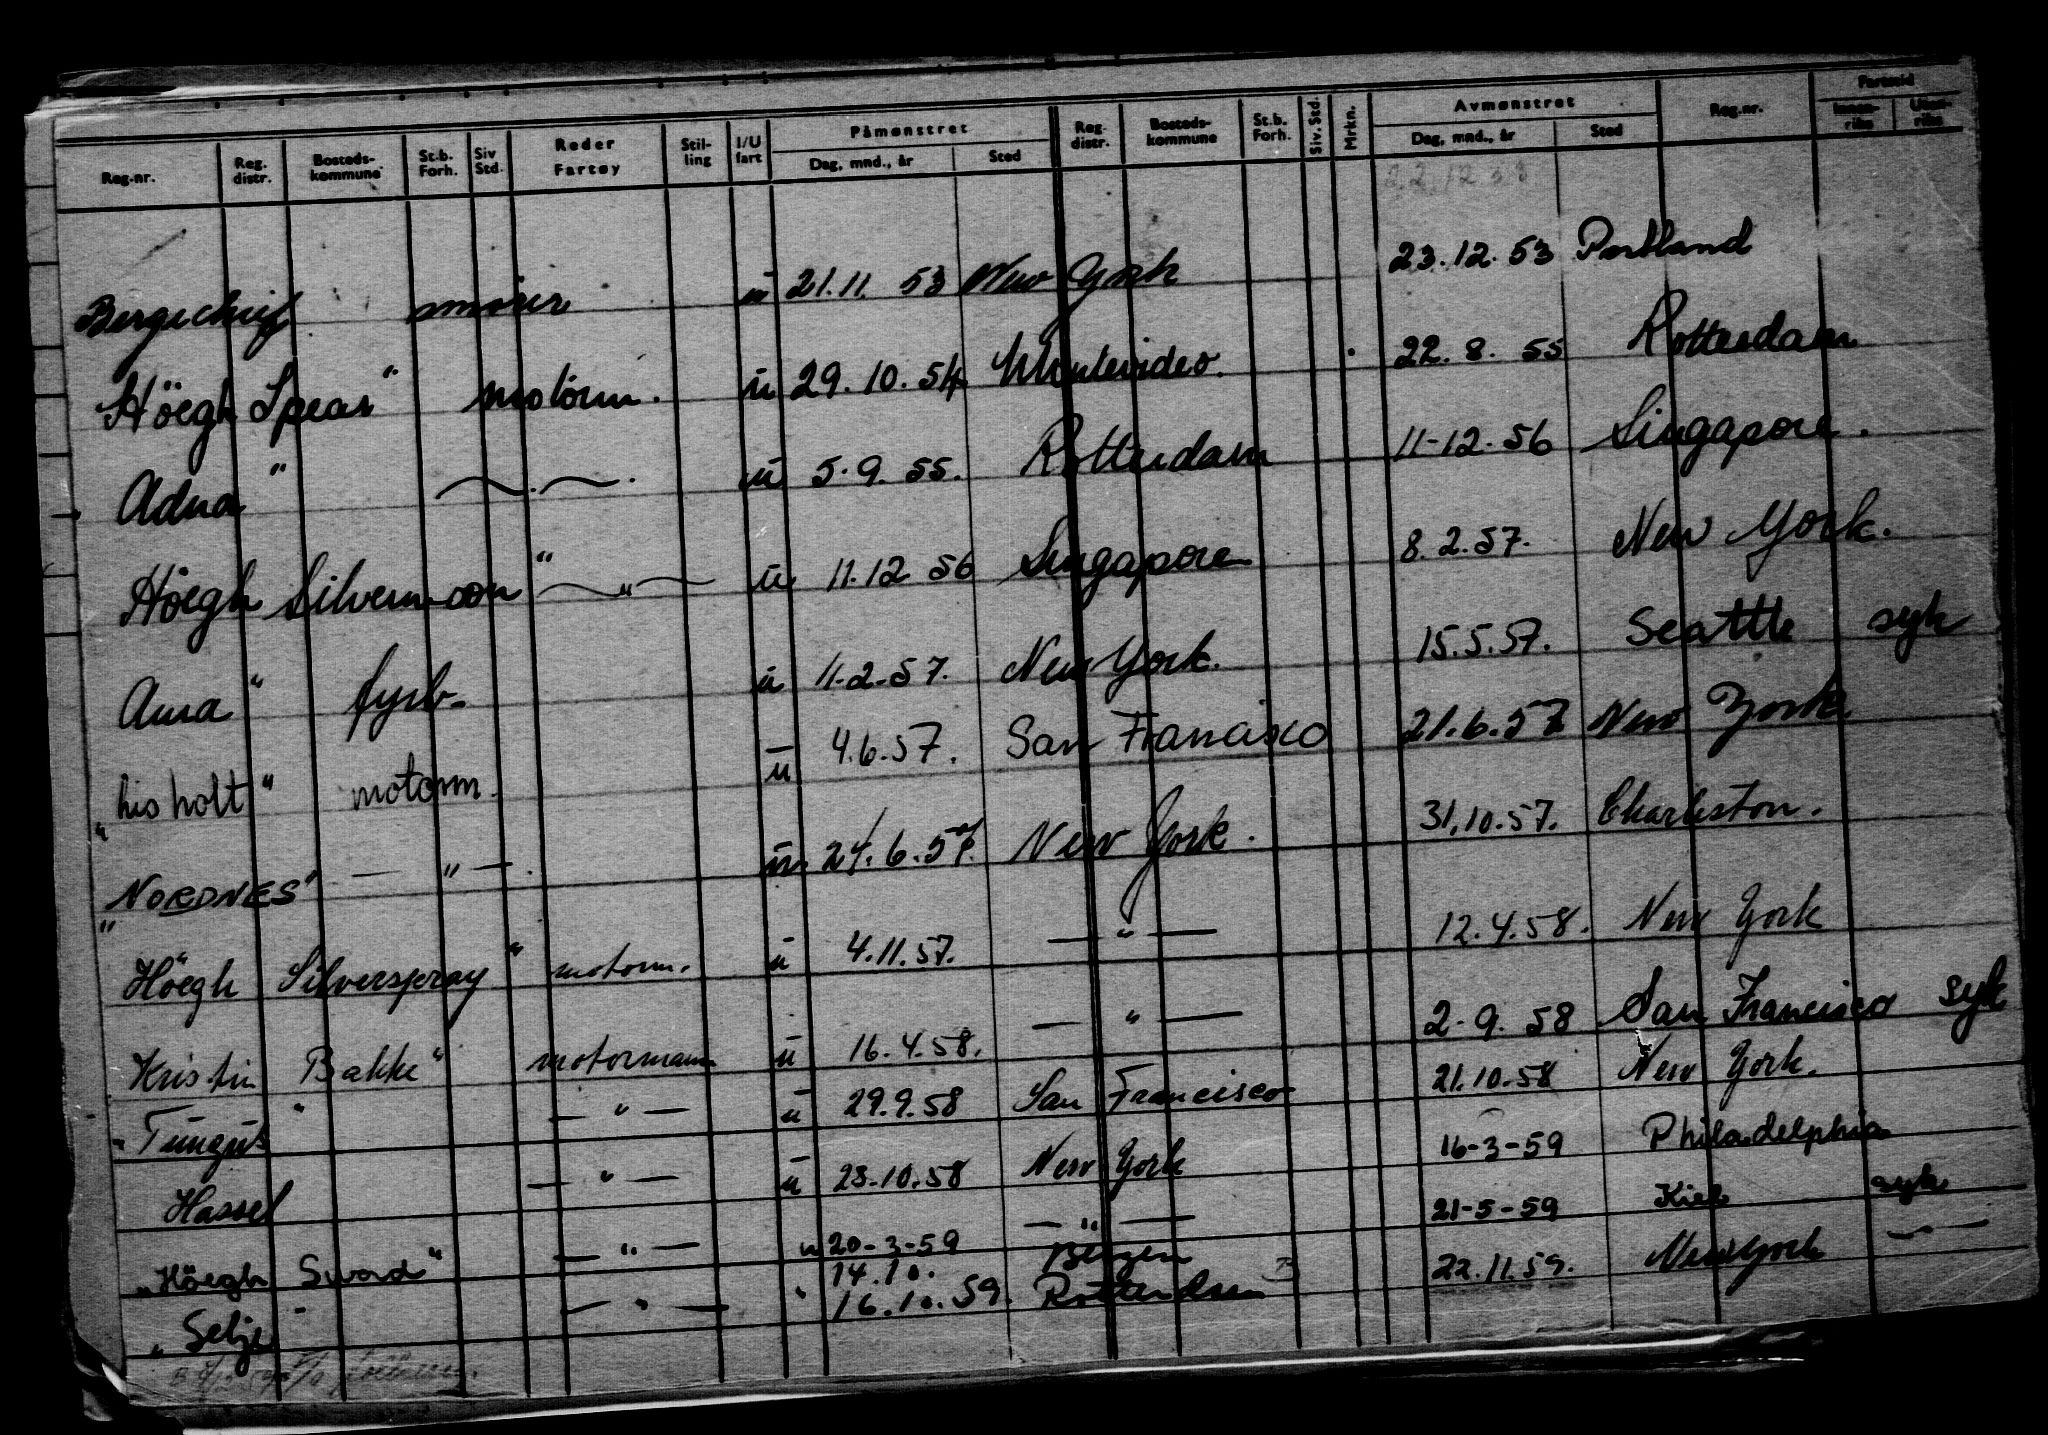 Påmønstret Avmønstret Partseid
Reg.-nr. Reg. distr. Bosteds-kommune St.b. Forh. Siv Std. Reder Fartøy Stil-ling I/U fart Dag, mnd., år Sted Reg. distr. Bosteds-kommune St.b. Forh. Siv. Std. Mrkn. Dag, mnd., år Sted Reg.nr. Innen-riks Uten-riks
Bergechief smører u 21.11. 53 New York 23.12.53 Portland
Höegh Spear" motorm. u 29.10.54 Montevideo. 22.8. 55 Rotterdam
Adna " — . — . u 5.9. 55. Rotterdam 11-12.56 Singapore.
Höegh Silvermoon " — " — u 11.12 56 Singapore 8.2.57. New York.
Anna " fyrb. u 11-2-57. New York. 15.5.57. Seattle syk
" his holt " motorm. u 4.6.57. San Francisco 21.6.57 New York
" NORDNES" — " — . u 24.6.57. New York. 31.10.57. Charleston.
Höegh Silverspray " motorm. u 4.11.57. — " — 12.4.58. New York
Kristin Bakke" motormann u 16.4.58. — " — 2-9. 58 San Francisco syk
" Tungus " — " — u 29.9.58 San Francisco 21.10.58 New York.
Hassel — " — u 23.10.58 New York 16-3-59 Philadelphia
" Höegh Sword" — " — u 20-3-59 — " — 21-5-59 Kiel syk
14.10. Bergen
" Selje " — " — " 16.10.59. Rotterdam 22.11.59. New York — " —